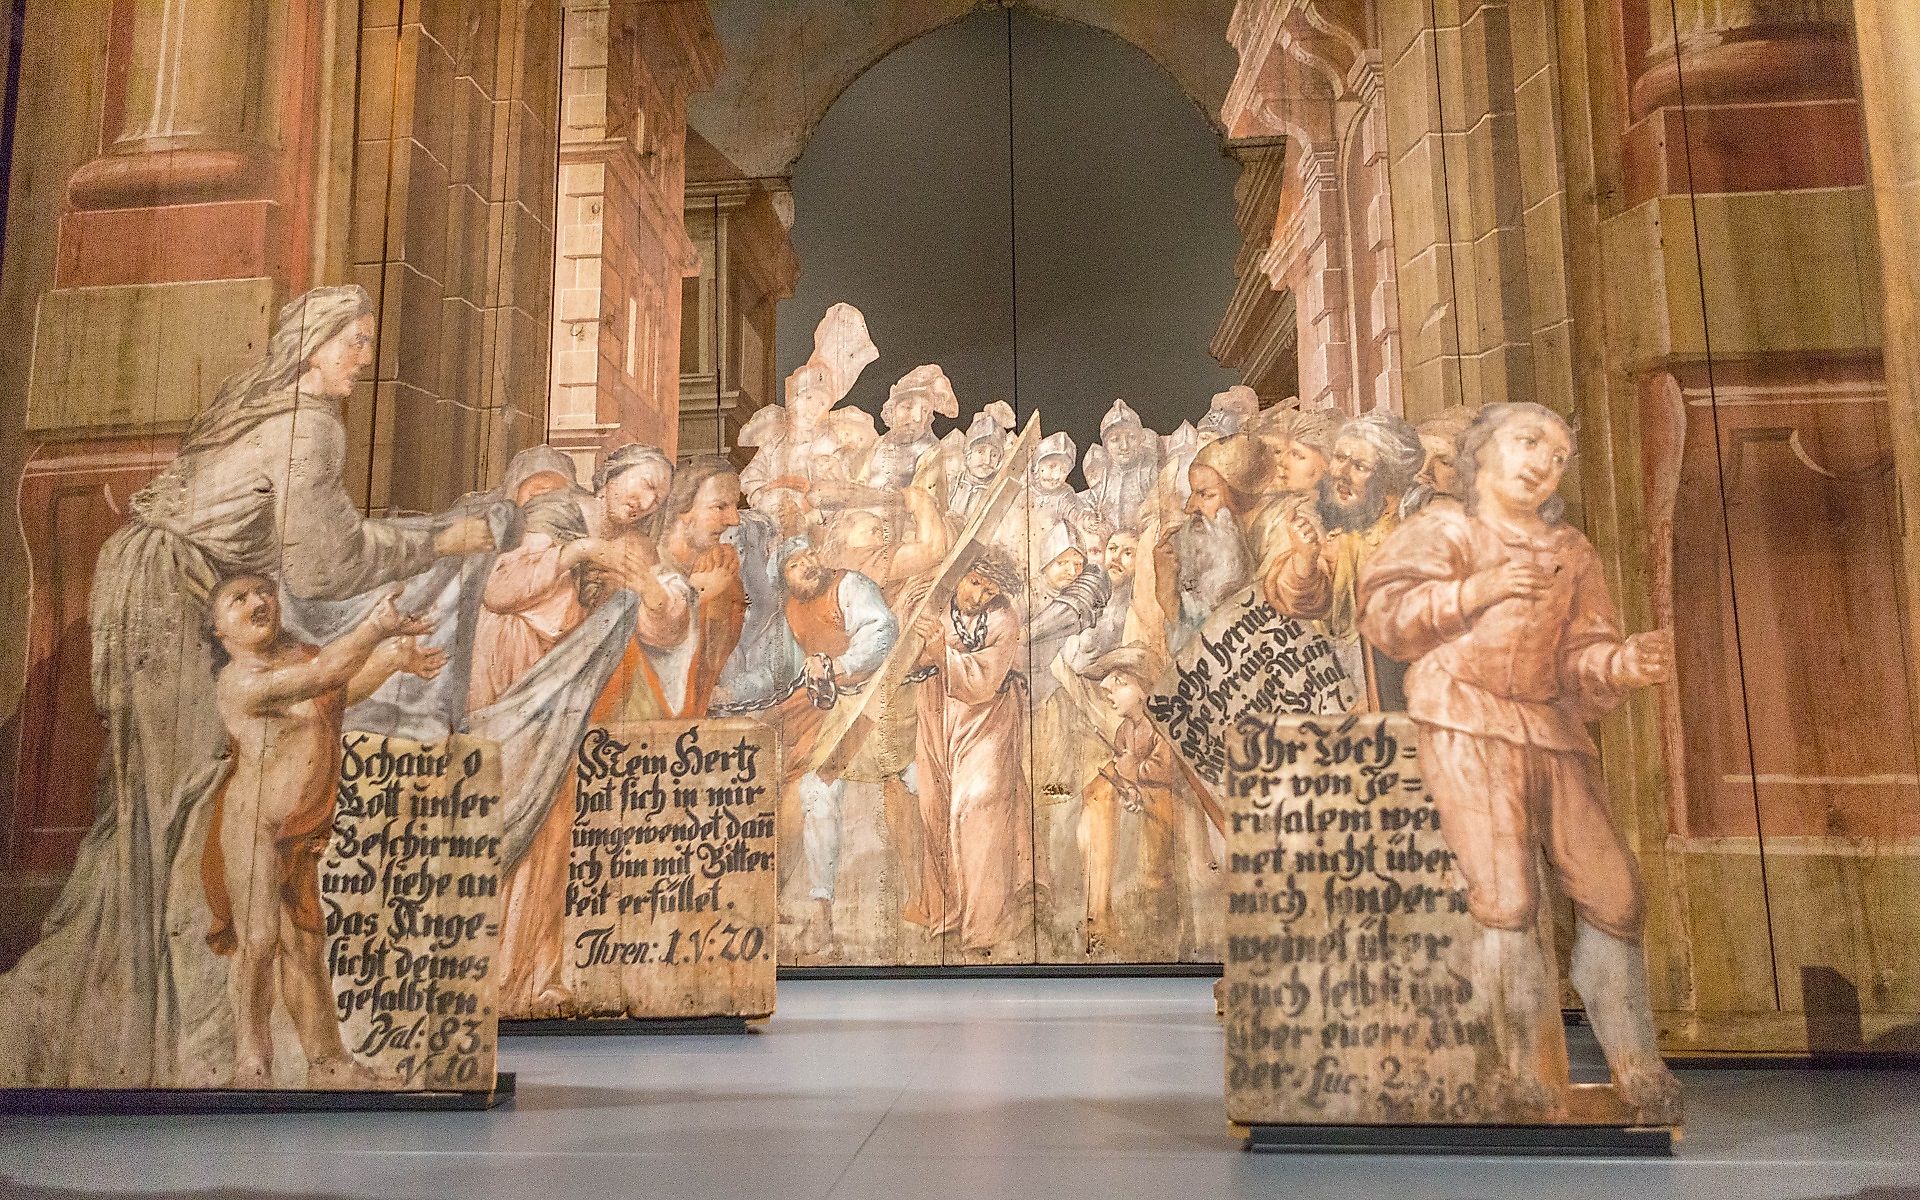 Schaue o
Gott unser
Beschirmer,
und siehe an
das Ange=
sicht deines
gesalbten.
Psal: 83.
V. 10.
Mein Hertz
hat sich in mir
umgewendet dañ
ich bin mit Bitter:
keit erfüllet.
Thren: 1. V: 20.
Gehe heraus,
gehe heraus du
Mañ
Belial
7.
Ihr Töch=
ter von Je=
rusalem wei
net nicht über
mich, sondern
weinet über
euch selbst, und
über euere Kin
der. Luc: 23.
V. 28.